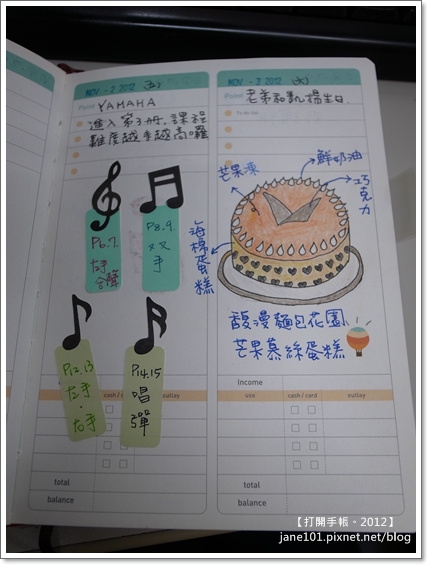 NOV - 2 2012 (五)
Point YAMAHA
進入第3冊,課程
難度越來越高囉
P6.7.
左手
合聲
P8.9.
双
手
P12.13
左手
右手
P14.15
唱
彈
cash / card
outlay
total
balance
NOV - 3 2012 (六)
Point 老弟和凱揚生日
To do list
芒果凍
鮮奶油
巧克力
海棉蛋糕
馥漫麵包花園
芒果慕絲蛋糕
Income
use
cash / card
outlay
total
balance
【打開手帳。2012】
jane101.pixnet.net/blog